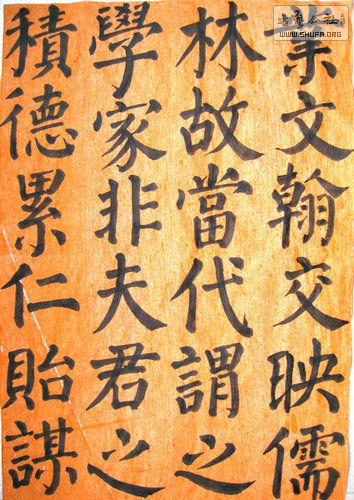 業文翰交映儒
林故當代謂之
學家非夫君之
積德累仁貽謀
WWW.SHUFA.ORG